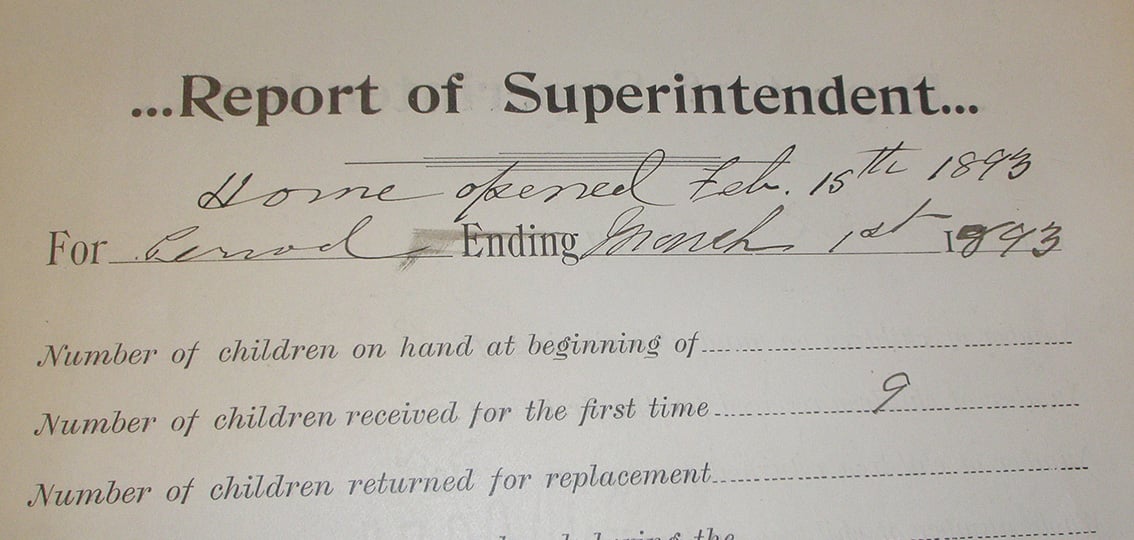 ...Report of Superintendent...
Home opened Feb. 15th 1893
For Period Ending March 1st 1893
Number of children on hand at beginning of
Number of children received for the first time 9
Number of children returned for replacement
during the